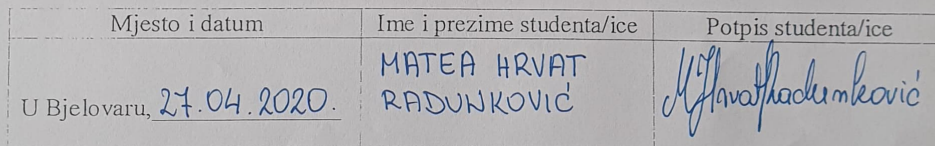 Mjesto i datum Ime i prezime studenta/ice Potpis studenta/ice
MATEA HRVAT
U Bjelovaru, 27.04.2020. RADUNKOVIĆ MHrvatRadunković